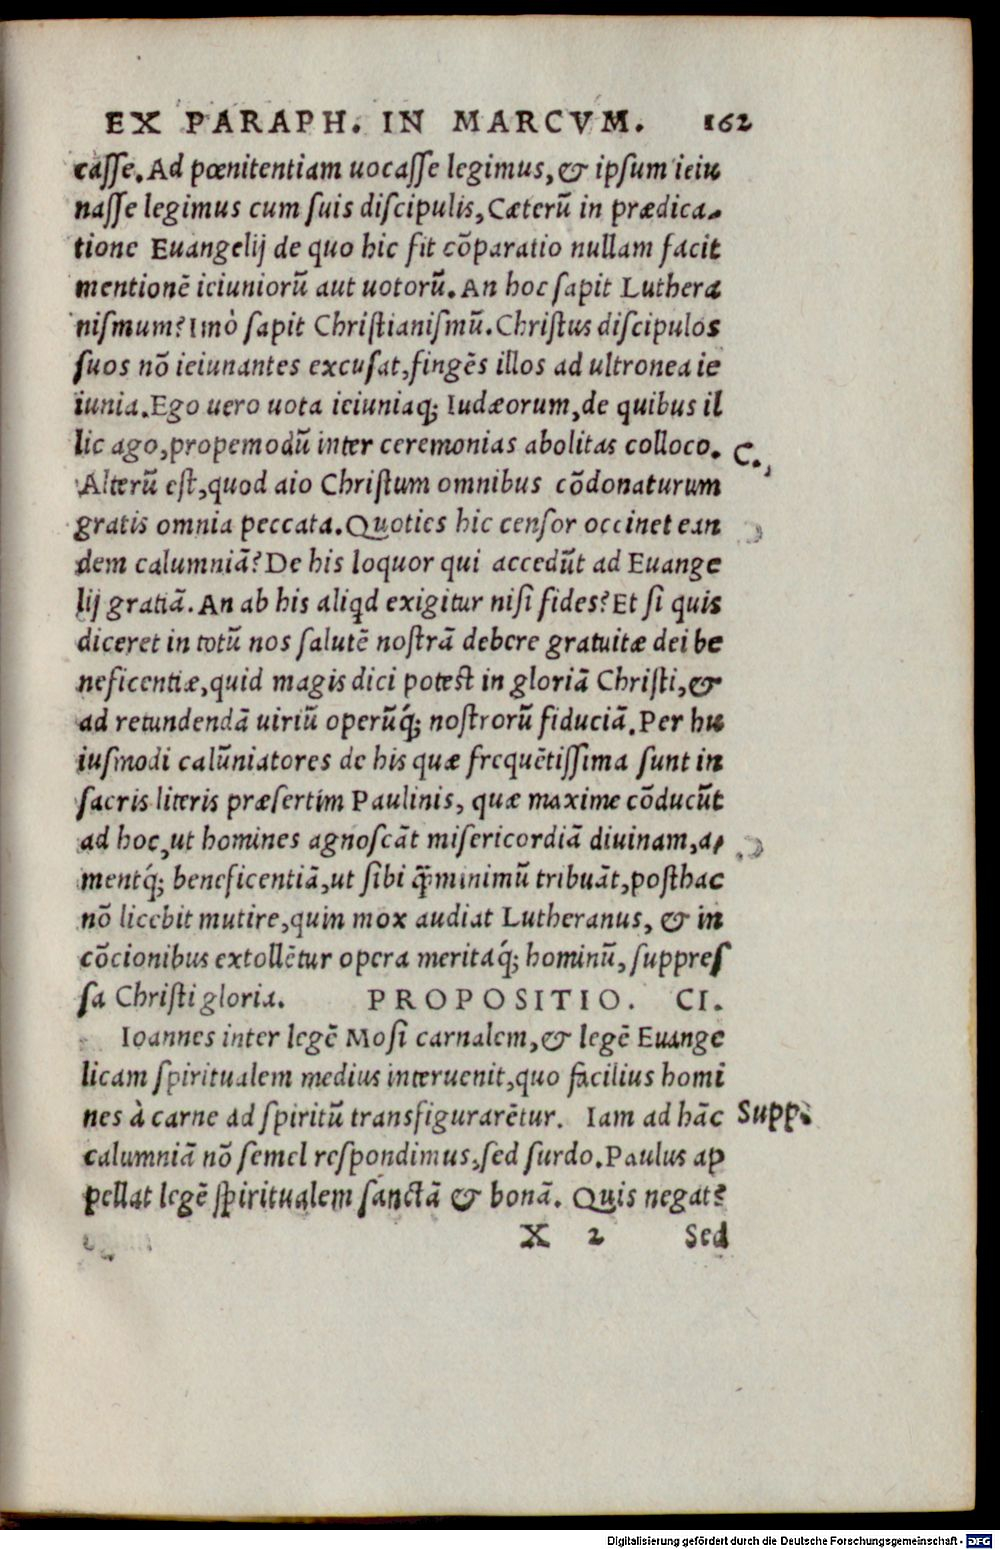 EX PARAPH. IN MARCVM. 162
casse. Ad pœnitentiam uocasse legimus, & ipsum ieiu
nasse legimus cum suis discipulis, Cæterũ in prædica-
tione Euangelij de quo hic fit cõparatio nullam facit
mentionẽ ieiuniorũ aut uotorũ. An hoc sapit Luthera
nismum? Imò sapit Christianismũ. Christus discipulos
suos nõ ieiunantes excusat, fingẽs illos ad ultronea ie
iunia. Ego uero uota ieiuniaq; Iudæorum, de quibus il
lic ago, propemodũ inter ceremonias abolitas colloco.
C.
Alterũ est, quod aio Christum omnibus cõdonaturum
gratis omnia peccata. Quoties hic censor occinet ean
dem calumniã? De his loquor qui accedũt ad Euange
lij gratiã. An ab his aliqd exigitur nisi fides? Et si quis
diceret in totũ nos salutẽ nostrã debere gratuitæ dei be
neficentiæ, quid magis dici potest in gloriã Christi, &
ad retundendã uiriũ operũq́; nostrorũ fiduciã. Per hu
iusmodi calũniatores de his quæ frequẽtissima sunt in
sacris literis præsertim Paulinis, quæ maxime cõducũt
ad hoc, ut homines agnoscãt misericordiã diuinam, a-
mentq́; beneficentiã, ut sibi q̃minimũ tribuãt, posthac
nõ licebit mutire, quin mox audiat Lutheranus, & in
cõcionibus extollẽtur opera meritaq́; hominũ, suppres
sa Christi gloria. PROPOSITIO. CI.
Ioannes inter legẽ Mosi carnalem, & legẽ Euange
licam spiritualem medius interuenit, quo facilius homi
nes à carne ad spiritũ transfigurarẽtur. Iam ad hãc
Supp.
calumniã nõ semel respondimus, sed surdo. Paulus ap
pellat legẽ spiritualem sanctã & bonã. Quis negat?
X 2 Sed
Digitalisierung gefördert durch die Deutsche Forschungsgemeinschaft - DFG